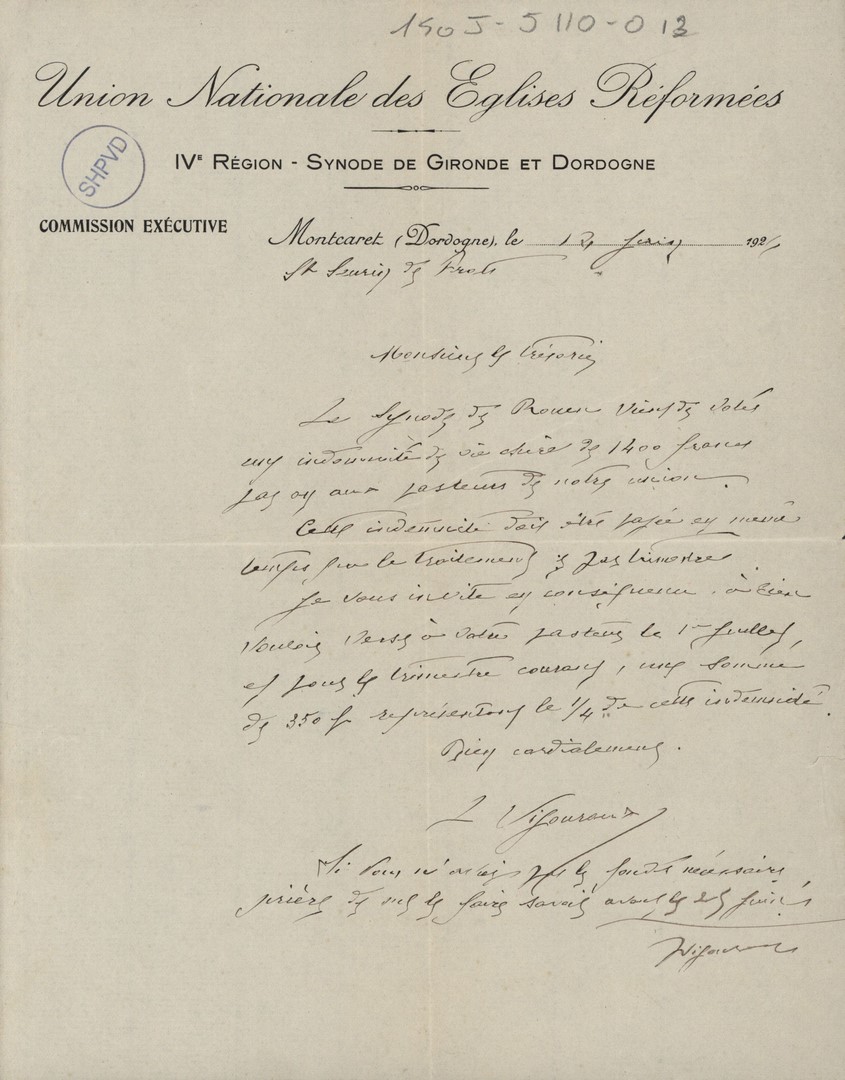 150 J - 5 110 - 0 12
Union Nationale des Eglises Réformées
SHPVD
IVe RÉGION - SYNODE DE GIRONDE ET DORDOGNE
COMMISSION EXÉCUTIVE
Montcaret (Dordogne), le 12 juin 192
St Seurin de Prats
Monsieur le trésorier
Le Synode de Rouen vient de voter
une indemnité de vie chère de 1400 francs
par an aux pasteurs de notre union.
Cette indemnité doit être payée en même
temps que le traitement par trimestre.
Je vous invite en conséquence à bien
vouloir verser à votre pasteur le 1er juillet,
et pour le trimestre courant, une somme
de 350 f représentant le 1/4 de cette indemnité.
Bien cordialement.
L Vigouroux
Si vous n'aviez pas les fonds nécessaires
prière de me le faire savoir avant le 25 juin
Vigouroux